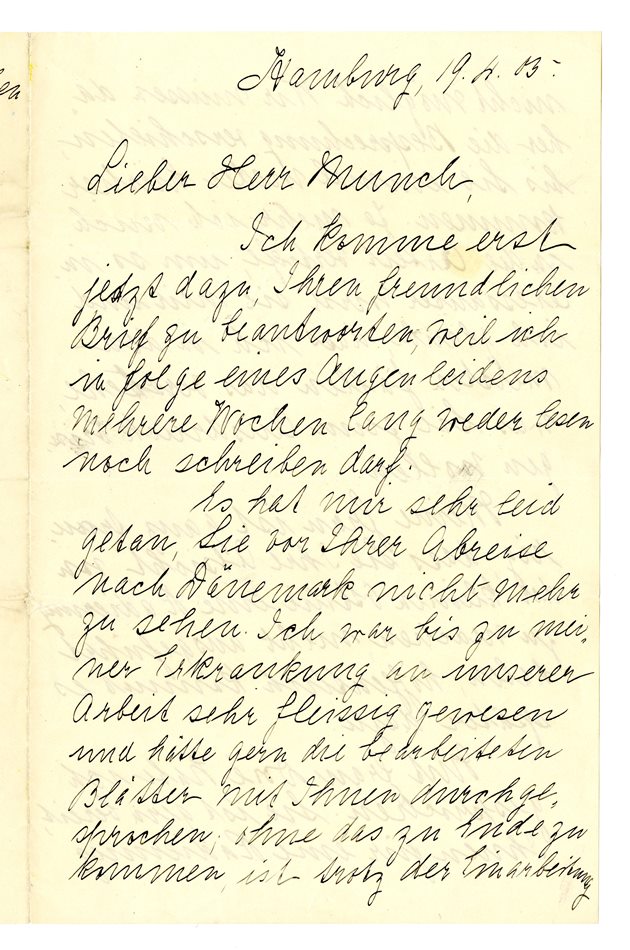 Hamburg, 19.4.05.
Lieber Herr Munch,
Ich komme erst
jetzt dazu, Ihren freundlichen
Brief zu beantworten, weil ich
in folge eines Augenleidens
mehrere Wochen lang weder lesen
noch schreiben darf.
Es hat mir sehr leid
getan, Sie vor Ihrer Abreise
nach Dänemark nicht mehr
zu sehen. Ich war bis zu mei-
ner Erkrankung an unserer
Arbeit sehr fleissig gewesen
und hätte gern die bearbeiteten
Blätter mit Ihnen durchge-
sprochen; ohne das zu Ende zu
kommen, ist trotz der Einarbeitung